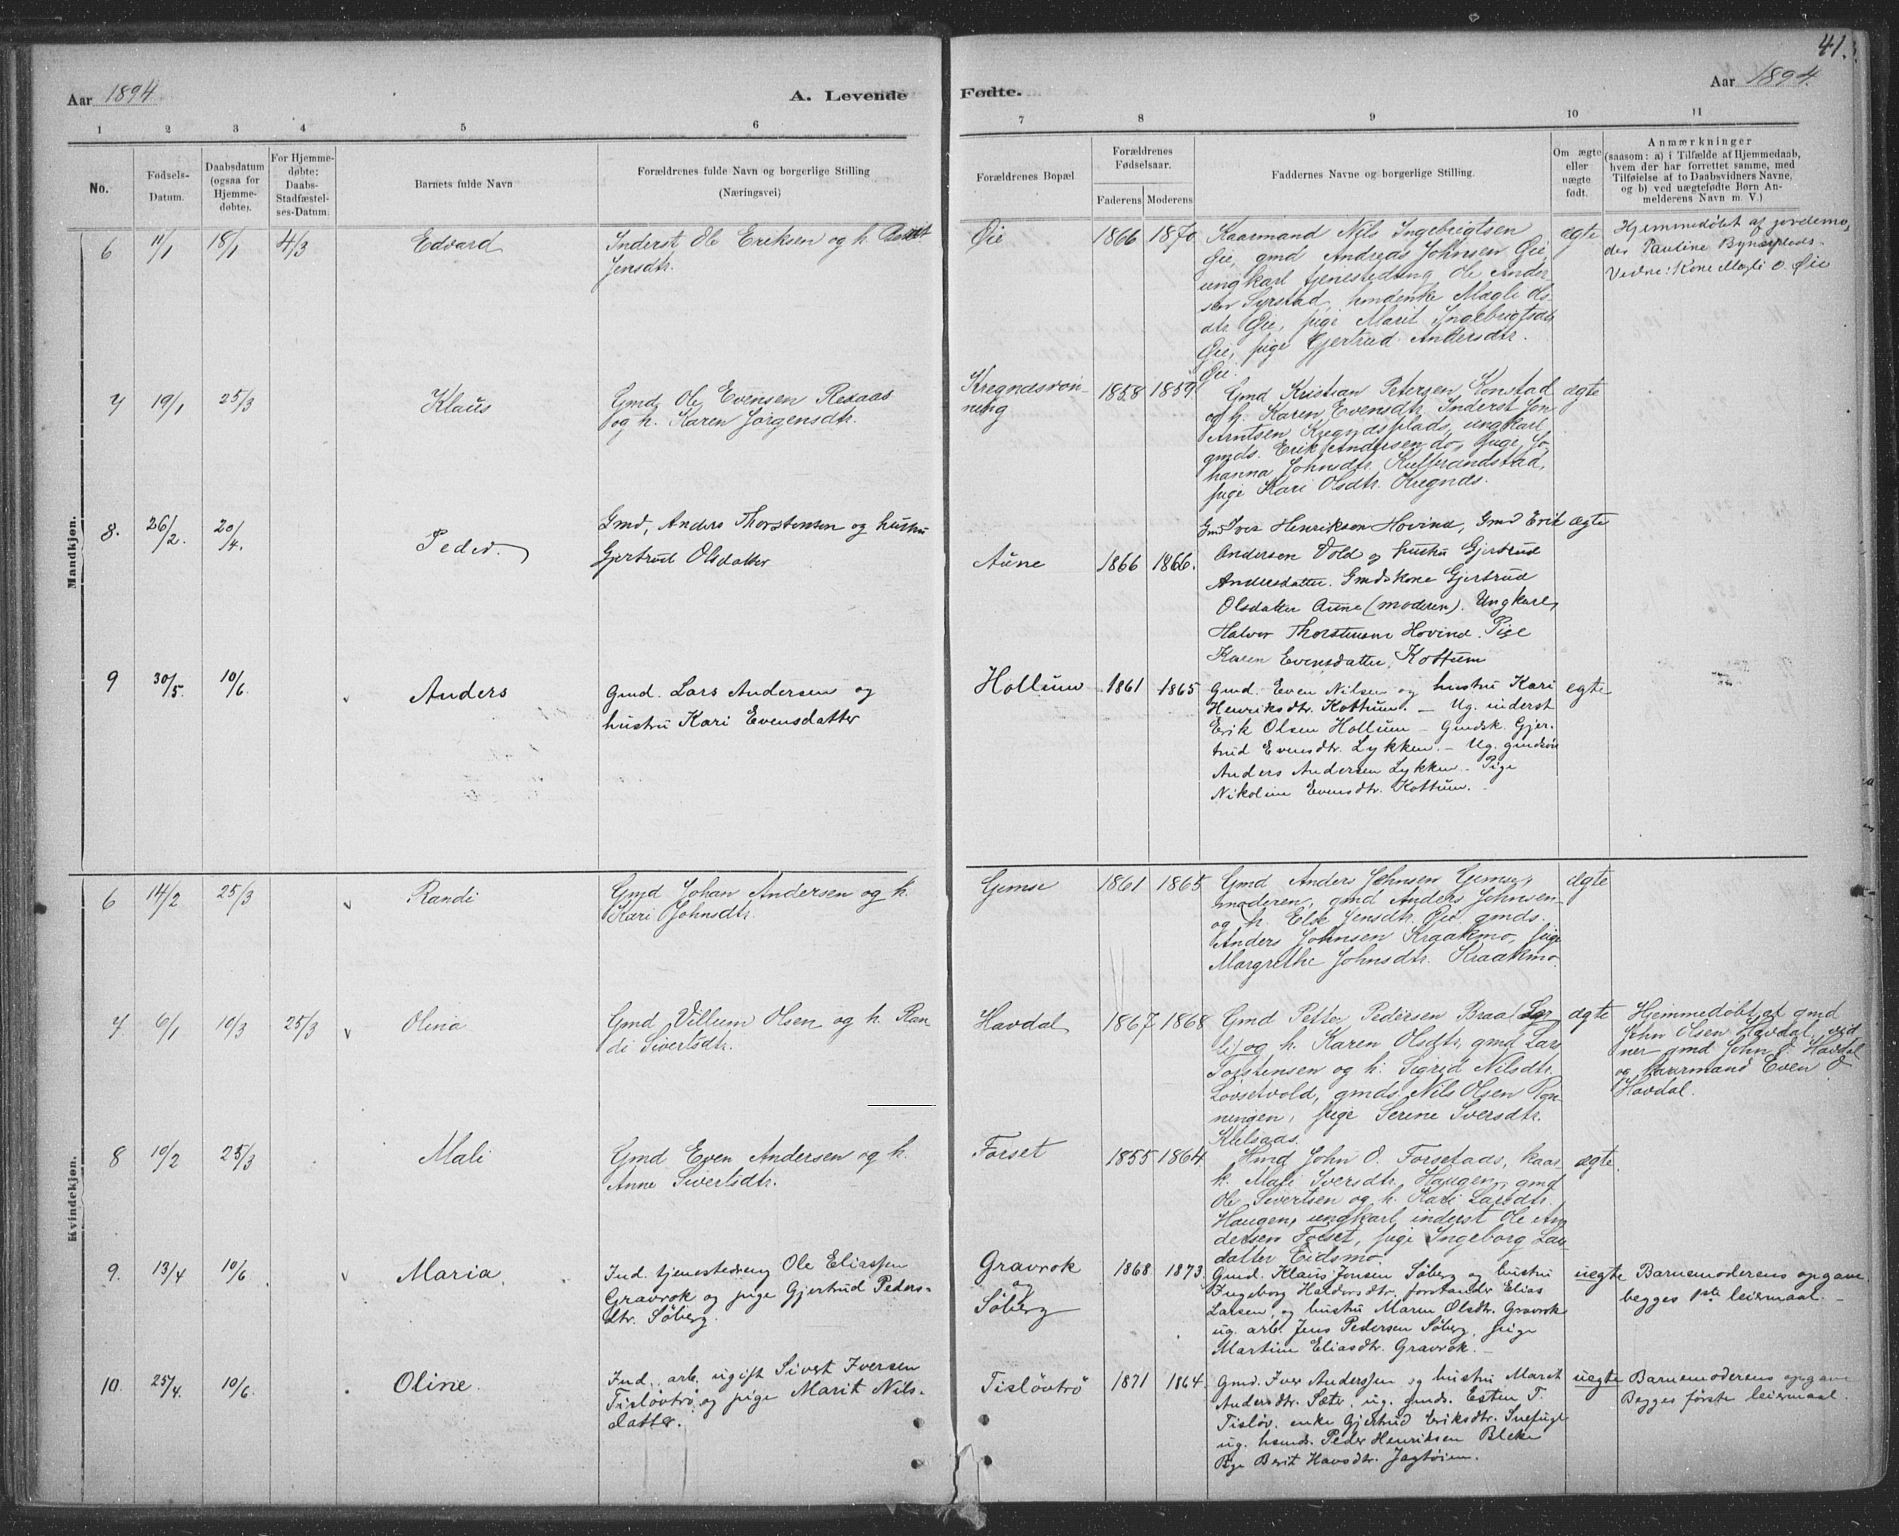 41.
Aar 1894
A. Levende Fødte.
Aar 1894.
1 2 3 4 5 6 7 8 9 10 11
No.
Fødsels-Datum.
Daabsdatum (ogsaa for Hjemmedøbte).
For Hjemmedøbte: Daabs-Stadfæstelses-Datum.
Barnets fulde Navn
Forældrenes fulde Navn og borgerlige Stilling (Næringsvei)
Forældrenes Bopæl
Forældrenes Fødselsaar.
Faderens Moderens
Faddernes Navne og borgerlige Stilling.
Om ægte eller uægte født.
Anmærkninger
(saasom: a) i Tilfælde af Hjemmedaab,
hvem der har forrettet samme, med
Tilføielse af to Daabsvidners Navne,
og b) ved uægtefødte Børn Anmelderens Navn m. V.)
Mandkjøn.
6 11/1 18/1 4/3 Edvard
Inderst Ole Eriksen og h.
Jensdtr.
Øie 1866 1870
Kaarmand Nils Ingebrigtsen
Øie, gmd Andreas Johnsen Øie,
ungkarl tjenestedreng Ole Ander
sen Syrstad, Magli Ols
dtr. Øie, pige Marit Ingebrigtsdtr
Øie, pige Gjertrud Andersdtr.
Øie.
ægte
Hjemmedøbt af jordemo,
der Pauline
Vidne: Kone Magli O. Øie
7 19/1 25/3 Klaus
Gmd Ole Evensen Rexaas
og h. Karen Jørgensdtr.
Kregnesrøn-
ning
1858 1859
Gmd Kristian Petersen Konstad
og h. Karen Evensdtr, Inderst Jon
Arntsen ungkarl
gmds. Erik Andersen do, pige Jo
hanna Johnsdtr.
pige Kari Olsdtr. Kregnds.
ægte
8. 26/2. 20/4. Peder.
Gmd, Anders Thorstensen og hustru
Gjertrud Olsdatter
Aune 1866 1866.
Gmd Iver Henriksen Hovind, Gmd Erik
Andersen Vold og hustru Gjertrud
Andersdatter. Gmdskone Gjertrud
Olsdatter Aune (moderen). Ungkarl,
Halvor Thorstensen Hovind. Pige
Karen Evensdatter, Kottum
ægte
9 30/5. 10/6. Anders
Gmd. Lars Andersen og
hustru Kari Evensdatter
Hollum 1861 1865
Gmd. Even Nilsen og hustru Kari
Henriksdtr. Kottum. — Ug. inderst
Erik Olsen Hollum — Gmdsk. Gjer-
trud Evensdtr. Lykken. — Ug. gmdsøn
Anders Andersen Lykken. Pige
Nikoline Evensdtr. Kottum.
egte
Kvindekjøn.
6 14/2 25/3 Randi
Gmd Johan Andersen og h.
Kari Johnsdtr.
Gimse 1861 1865
Gmd Anders Johnsen Gimse,
moderen, gmd Anders Johnsen
og h. Else Jensdtr. Øie gmds.
Anders Johnsen Kraakmo, pige
Margrethe Johnsdtr. Kraakmo.
ægte
7 6/1 10/3 25/3 Olina
Gmd Villum Olsen og h. Ran
di Sivertsdtr.
Havdal 1867 1868
Gmd Petter Pedersen Braa(Lor
li) og h. Karen Olsdtr, gmd Lars
Torstensen og h. Sigrid Nilsdtr.
Løvsetvold, gmds Nils Olsen Røn
ningen, pige Serine Iversdtr.
ægte
Hjemmedøbt af gmd
John Olsen Havdal, vid
ner gmd John O Havdal
og kaarmand Even O
Havdal.
8 10/2 25/3 Mali
Gmd Even Andersen og h.
Anne Sivertsdtr.
Forset 1855 1864
Hmd John O. Forsetads, kaar
k. Mali Iversdtr, Haugen, gmd
Ole Sivertsen og h. Kari Larsdtr.
Haugen, ungkarl inderst Ole An
dersen Forset, pige Ingeborg Lars
datter Eidsmo.
ægte.
9. 13/4 10/6 Maria.
Ind. tjenestedreng Ole Eliassen
Gravrok og pige Gjertrud Peders-
dtr. Søberg.
Gravrok
og
Søberg
1868 1873.
Gmd. Klaus Jonsen Søberg og hustru
Ingeborg Haldorsdtr. forstander Elias
Larsen og hustru Maren Olsdtr. Gravrok
ug. arb. Jens Pedersen Søberg, pige
Martine Eliasdtr. Gravrok. —
uegte
Barnemoderens opgave
begges 1ste leiermaal. —
10. 25/4. 10/6. Oline.
Ind. arb. ugift Sivert Iversen
Tisløvtrø og pige Marit Nils-
datter.
Tisløvtrø 1871 1864.
Gmd. Iver Anderssen og hustru Marit
Andersdtr. Sæter, ug. gmds. Esten T.
Tisløv. enke Gjertrud Eriksdtr. Snefugl
ug. Peder Henriksen
Pige Berit Hansdtr. Jagtøien.
uegte
Barnemoderens opgave
Begges første leiermaal.